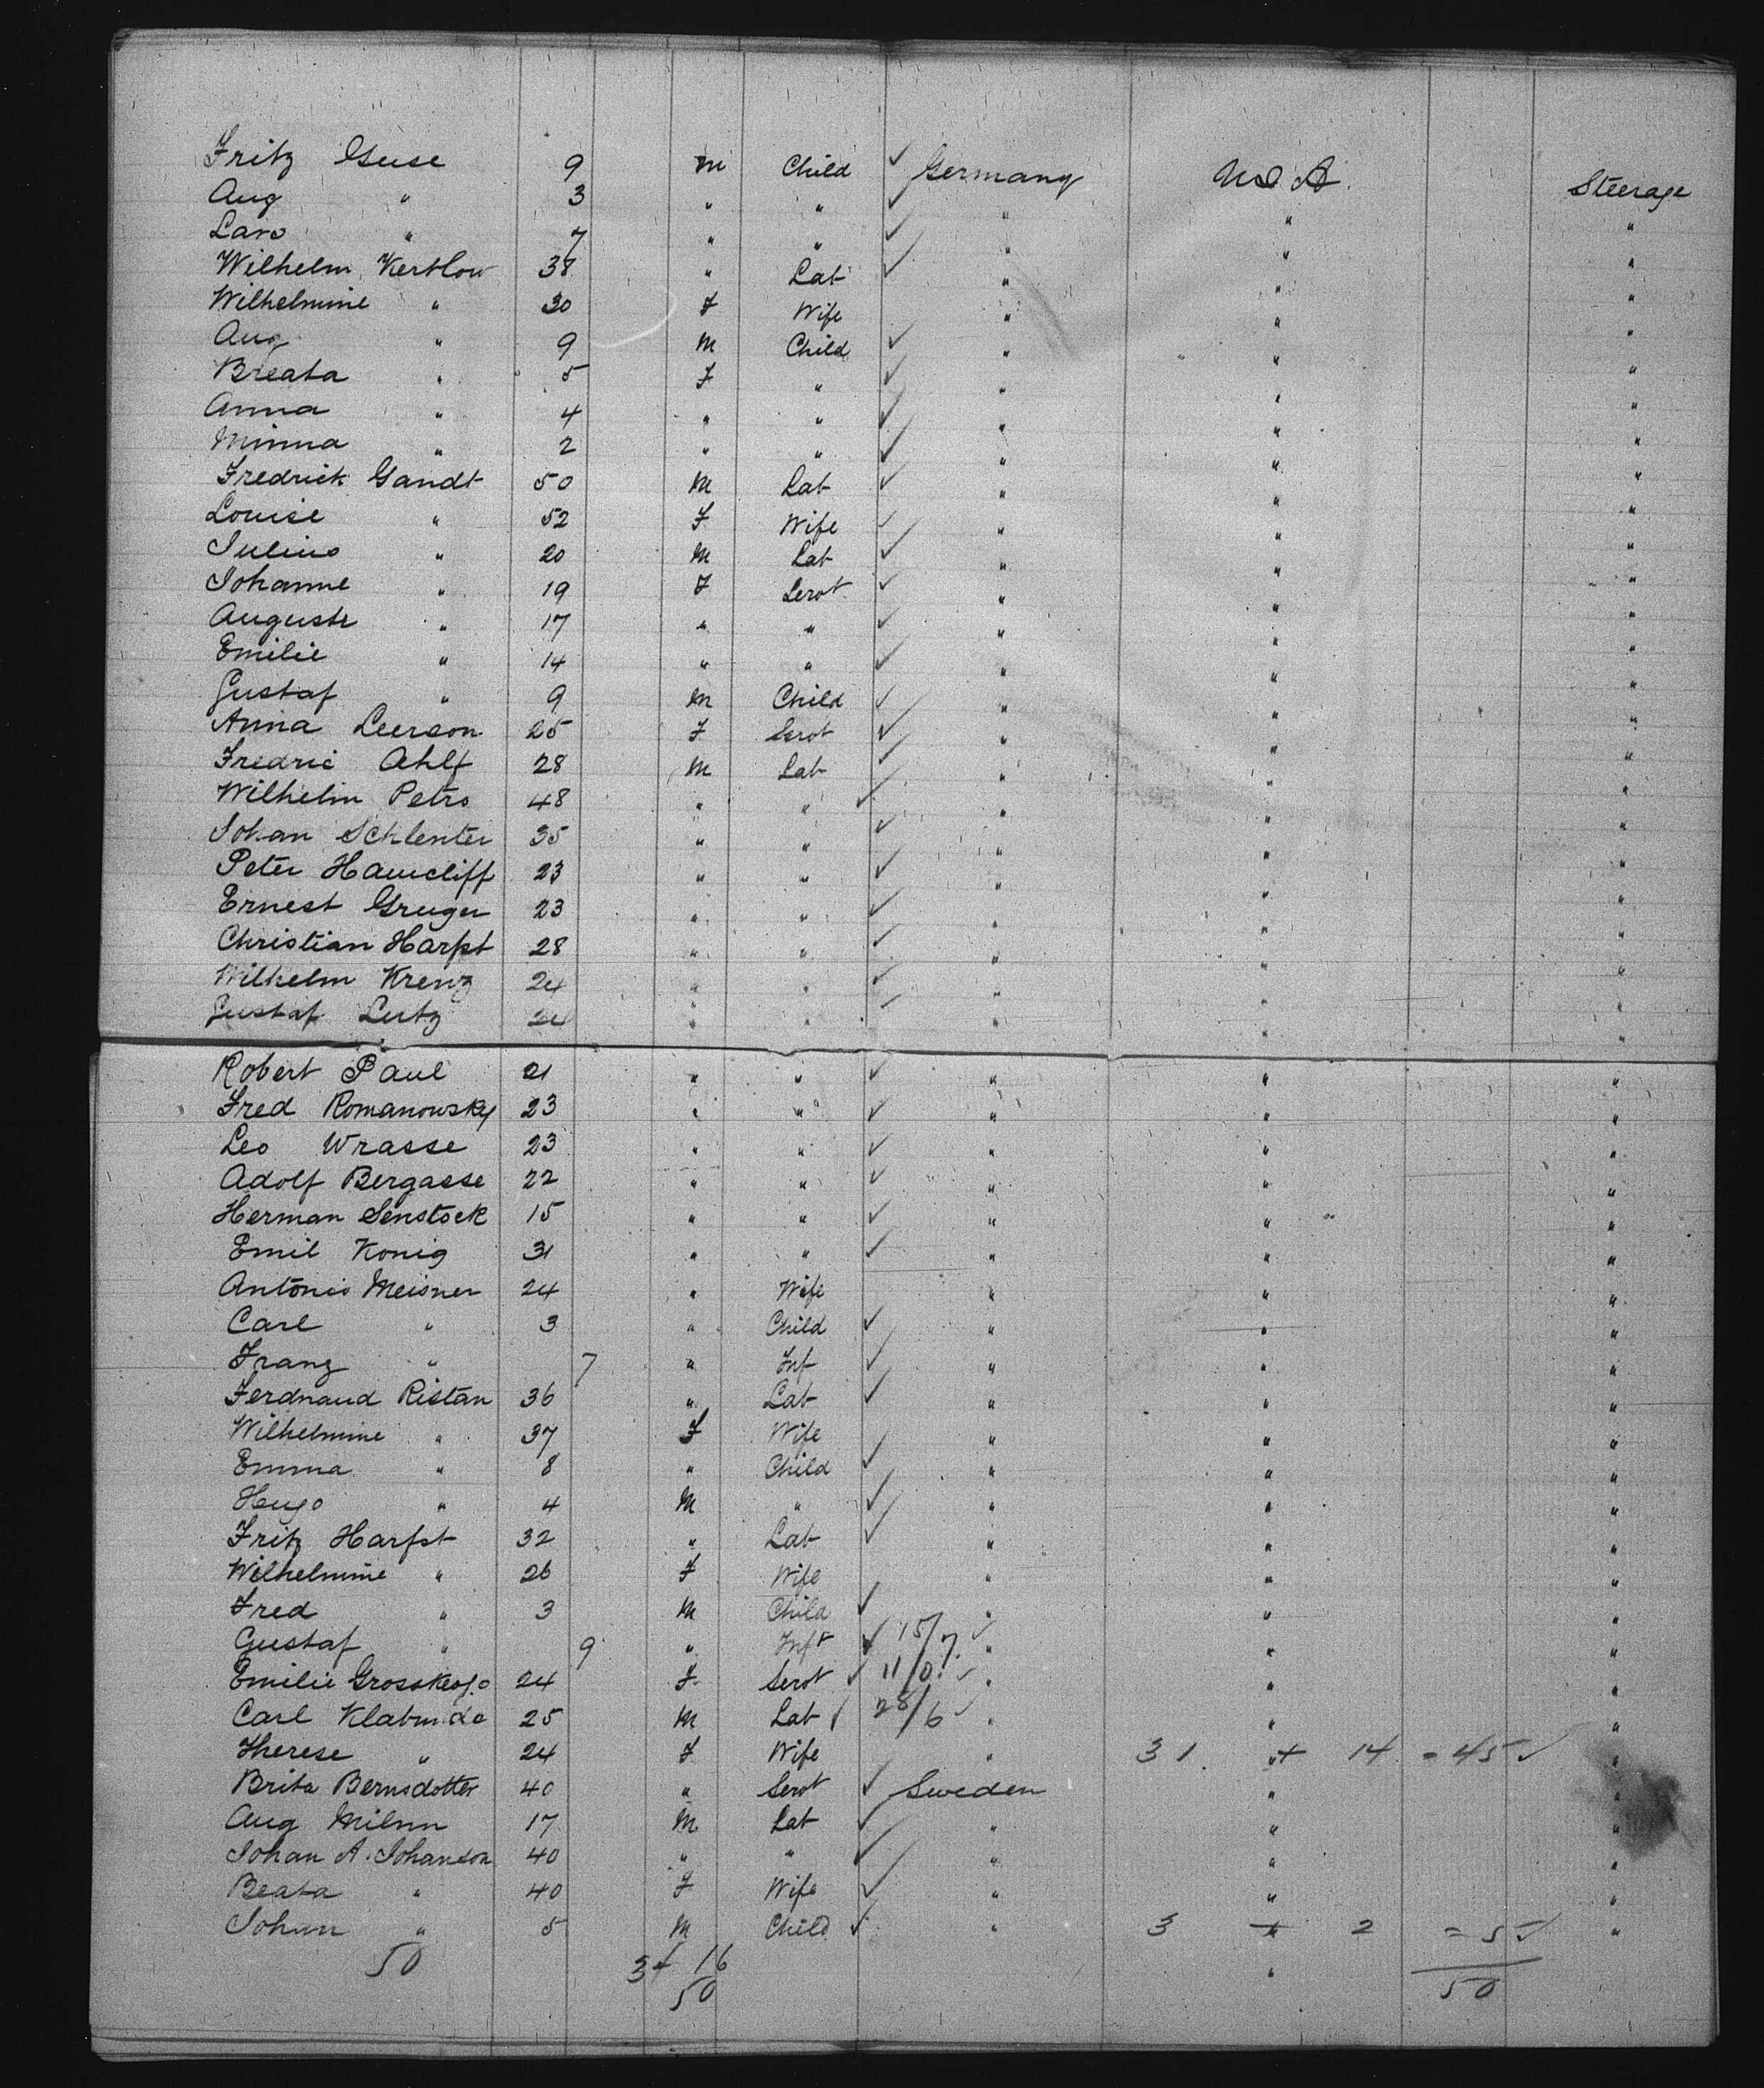 Fritz Guse 9 M Child ✓ Germany U S A. Steerage
Aug " 3 " " ✓ " " "
Lars " 7 " " ✓ " " "
Wilhelm Kertlow 38 " Lab ✓ " " "
Wilhelmine " 30 F Wife " " "
Aug " 9 M Child ✓ " " "
Breata " 5 F " ✓ " " "
Anna " 4 " " ✓ " " "
Minna " 2 " " ✓ " " "
Fredrick Gandt 50 M Lab ✓ " " "
Louise " 52 F Wife ✓ " " "
Julius " 20 M Lab ✓ " " "
Johanne " 19 F Servt ✓ " " "
Auguste " 17 " " ✓ " " "
Emilie " 14 " " ✓ " " "
Gustaf " 9 M Child ✓ " " "
Anna Leerson 25 F Servt ✓ " " "
Fredric Ahlf 28 M Lab ✓ " " "
Wilhelm Petrs 48 " " ✓ " " "
Johan Schlenter 35 " " ✓ " " "
Peter Hawcliff 23 " " ✓ " " "
Ernest Gruger 23 " " ✓ " " "
Christian Harpt 28 " " ✓ " " "
Wilhelm Krenz 24 " " ✓ " " "
Gustaf Lutz 24 " " ✓ " " "
Robert Paul 21 " " ✓ " " "
Fred Romanowsky 23 " " ✓ " " "
Leo Wrasse 23 " " ✓ " " "
Adolf Bergasse 22 " " ✓ " " "
Herman Senstock 15 " " ✓ " " "
Emil Konig 31 " " ✓ " " "
Antonio Meisner 24 " Wife " " "
Carl " 3 " Child ✓ " " "
Franz " 7 " Inf ✓ " " "
Ferdnand Ristan 36 " Lab ✓ " " "
Wilhelmine " 37 F Wife " " "
Emma " 8 " Child ✓ " " "
Hugo " 4 M " ✓ " " "
Fritz Harpt 32 " Lab ✓ " " "
Wilhelmine " 26 F Wife " " "
Fred " 3 M Child ✓ " " "
Gustaf " 9 " Inft ✓ 15/7 ✓ " " "
Emilie 24 F Servt ✓ 11/0 ✓ " " "
Carl Klabunde 25 M Lab ✓ 28/6 ✓ " " "
Therese " 24 F Wife " 31 + 14 = 45 ✓ "
Brita Bernsdotter 40 " Servt ✓ Sweden " "
Aug Milnn 17 M Lab ✓ " " "
Johan A. Johanson 40 " " ✓ " " "
Beata " 40 F Wife ✓ " " "
Johan " 5 M Child ✓ " 3 + 2 = 5 ✓ "
50 34 16 "
50 50